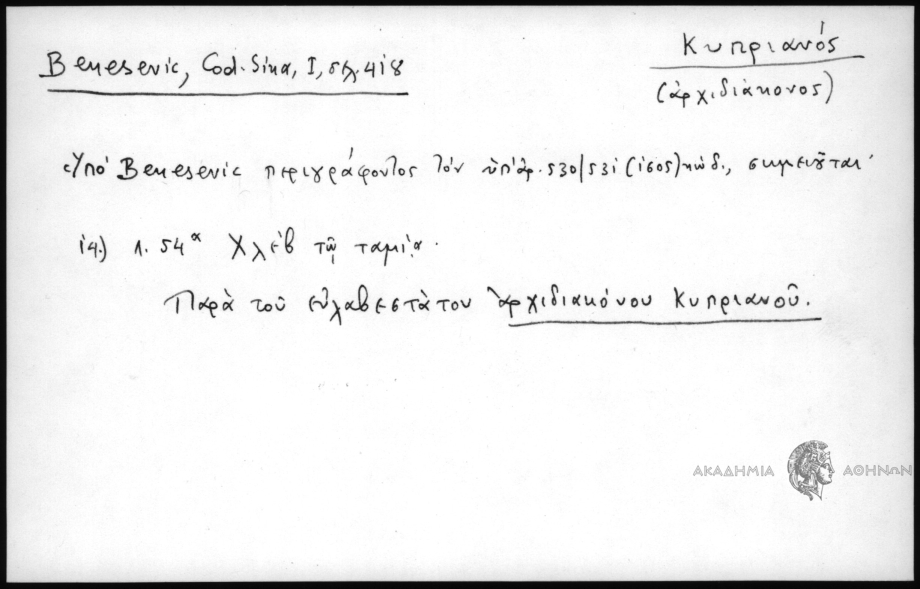 Benesevic, Cod. Sina, I, σελ. 418
Κυπριανός
(ἀρχιδιάκονος)
Ὑπό Benesevic περιγράφοντος τόν ὑπ' ἀρ. 530/531 (ἰσος) κώδ., σημειοῦται·
14) λ. 54α Χλὲβ τῷ ταμίᾳ.
Παρὰ τοῦ εὐλαβεστάτου ἀρχιδιακόνου Κυπριανοῦ.
ΑΚΑΔΗΜΙΑ ΑΘΗΝΩΝ